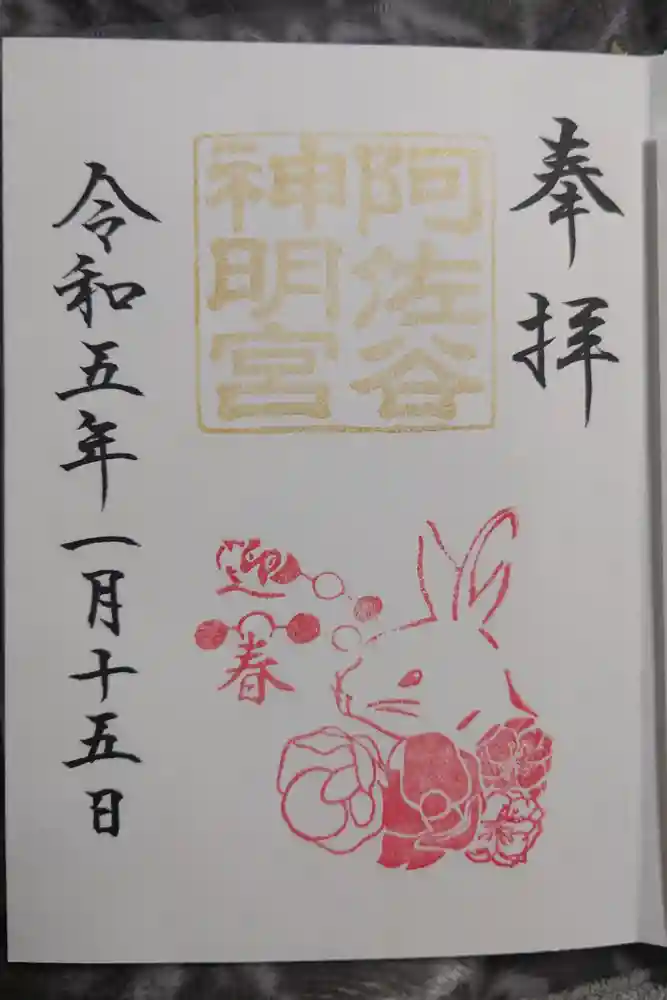 奉拝
阿佐谷
神明宮
迎
春
令和五年一月十五日